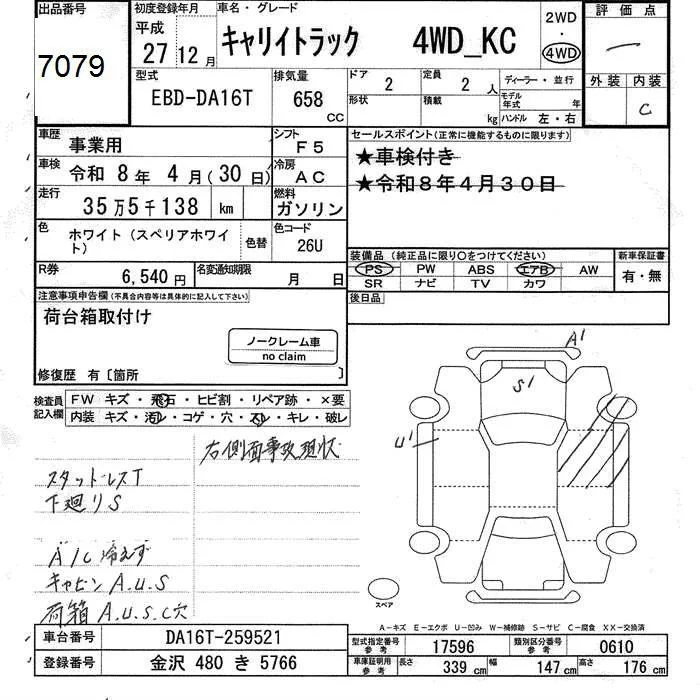 出品番号
7079
初度登録年月
平成
27 12月
車名・グレード
キャリイトラック 4WD_KC
2WD
・
4WD
評価点
一
外装 内装
C
型式
EBD-DA16T
排気量
658
CC
ドア
2
定員
2 人
形状
積載
kg
ディーラー・並行
モデル年式
年
ハンドル 左・右
車歴
事業用
シフト
F5
車検
令和 8年 4月(30日)
冷房
AC
走行
35万5千138 km
燃料
ガソリン
色
ホワイト(スペリアホワイト)
色替
色コード
26U
R券
6,540円
名変通知期限
月 日
セールスポイント(正常に機能するものに限ります)
★車検付き
★令和8年4月30日
装備品(純正品に限り○をつけてください)
PS PW ABS エアB AW
SR ナビ TV カワ
新車保証書
有・無
後日品
注意事項申告欄(不具合内容等は具体的に記入して下さい)
荷台箱取付け
ノークレーム車
no claim
修復歴 有〔箇所 〕
検査員記入欄
FW キズ・飛石・ヒビ割・リペア跡・×要
内装 キズ・汚レ・コゲ・穴・スレ・キレ・破レ
右側面事故現状
スタッドレスT
下廻りS
A/C冷えず
キャビンA.U.S
荷箱A.U.S.C穴
A1
S1
U1
スペア
A-キズ E-エクボ U-凹み W-補修跡 S-サビ C-腐食 XX-交換済
車台番号
DA16T-259521
登録番号
金沢 480 き 5766
型式指定番号
参考
17596
類別区分番号
参考
0610
車庫証明用
参考
長さ
339 cm
幅
147 cm
高さ
176 cm